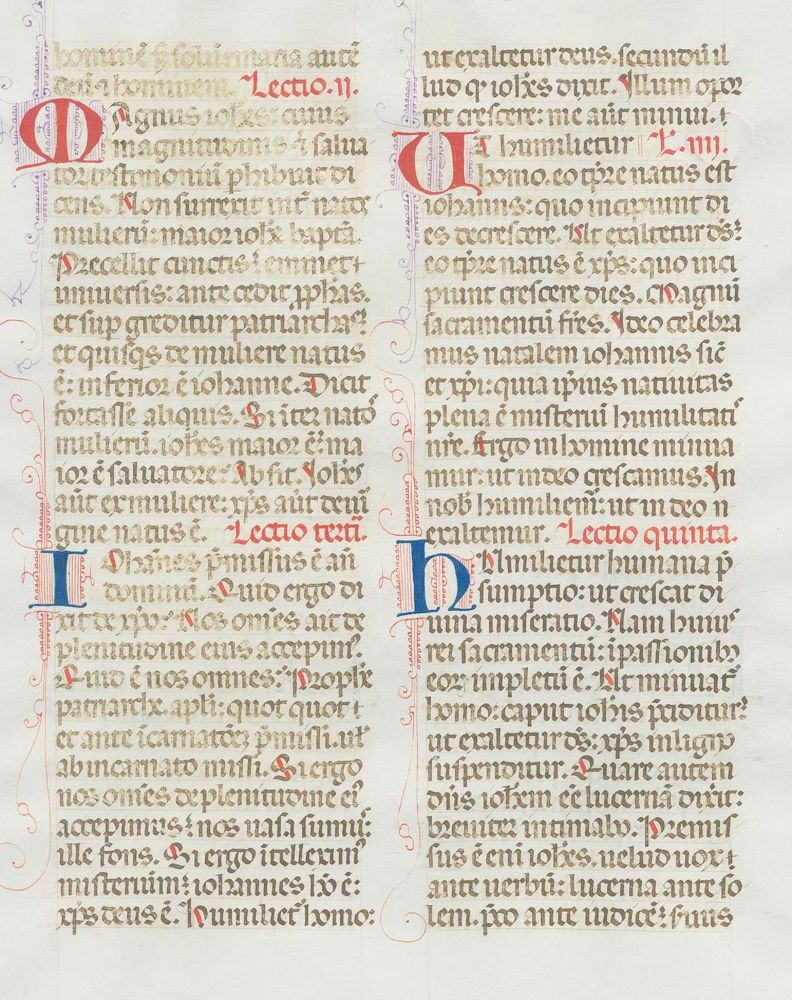 hominē s; solū maria autē
deū ⁊ hominem. Lectio .ij.
MAgnus ioh̄es: cuius
magnitudinis ⁊ salua
tor testimoniū p̱hibuit di
cens. Non surrexit int̄ natos
mulierū: maior ioh̄e bapta.
Precellit cunctis: ī eminet ⁊
uniuersis: ante cedit p̱phās.
et sup̱ greditur patriarchas⁊
et quisq̱s de muliere natus
ē: inferior ē iohanne. Dicit
fortasse aliquis. Si īter nato᷒
mulierū. ioh̄es maior ē: ma
ior ē saluatore: Absit. Ioh̄es
aūt ex muliere: xp̄s aūt de uir̄
gine natus ē. Lectio tertī.
IOhan̄es p̄missus ē añ
dominū. Quid ergo di
xit de xp̄o: Nos om̄es ait de
plenitudine eius accepim᷒.
Quid ē nos omnes: Prophē
patriarche. apl̄i: quot quot ⁊
et ante īcarnatōeꝫ p̄missi. ul̄
ab incarnato missi. Si ergo
nos om̄es de plenitudine ei᷒
accepimus⁊ nos uasa sumus:
ille fons. Si ergo ītellexim᷒
misterium⁊ iohannes hō ē:
xp̄s deus ē. Humiliet̄ homo:
ut exaltetur deus. secundū il
lud q᷒ ioh̄es dixit. Illum opor
tet crescere: me aūt minui. ⁊
UT humilietur L. iiii.
homo. eo tp̄re natus est
iohannis: quo incipiunt di
es decrescere. Ut exaltetur d̄s⁊
eo tp̄re natus ē xp̄s: quo inci
piunt crescere dies. Magnū
sacramentū frēs. Ideo celebra
mus natalem iohannis sic̄
et xp̄i: quia ip̄ius natiuitas
plena ē misteriū humilitati᷒
nr̄e. Ergo in homine minua
mur: ut in deo crescamus. In
nob̄ humiliem̄: ut in deo n
exaltemur. Lectio quinta.
hUmilietur humana p̄
sumptio: ut crescat di
uina miseratio. Nam huius
rei sacramentū: ī passionibꝫ
eoꝝ impletū ē. Ut minuat̄
homo: caput ioh̄is p̄ciditur⁊
ut exaltetur d̄s: xp̄s in ligno
suspenditur. Quare autem
dn̄s ioh̄em eē lucernā dixit:
breuiter intimabo. Premis
sus ē eni ioh̄es. uelud uox ⁊
ante uerbū: lucerna ante so
lem. p̱co ante iudicē⁊ seruus